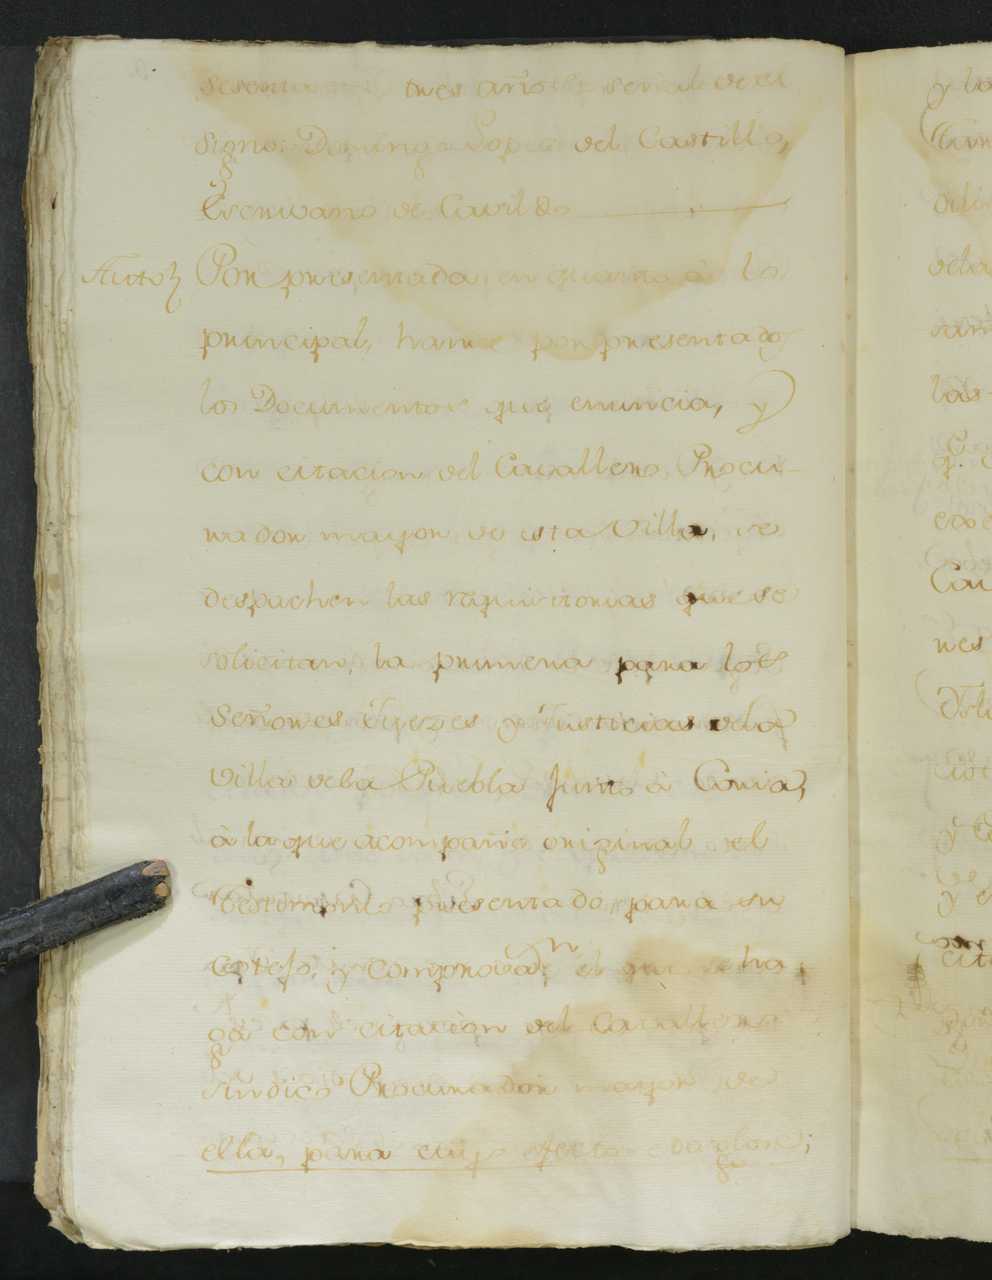 sesenta y tres años: señal de el
signo: Domingo Lopez del Castillo,
Escrivano de Cavildo
Auto Por presentada, en quanto â lo
principal, hanse por presentados
los Documentos que enuncia, y
con citacion del Cavallero Procu-
rador mayor de esta Villa, se
despachen las requicitorias que se
solicitan, la primera para los
Señores Juezes y Justicias dela
Villa dela Puebla junto â Coria,
â la que acompañe original el
testimonio presentado, para su
cotejo, y comprovacion el que se ha
ga con citacion del Cavallero
Sindico Procurador mayor de
ella, para cuyo efecto